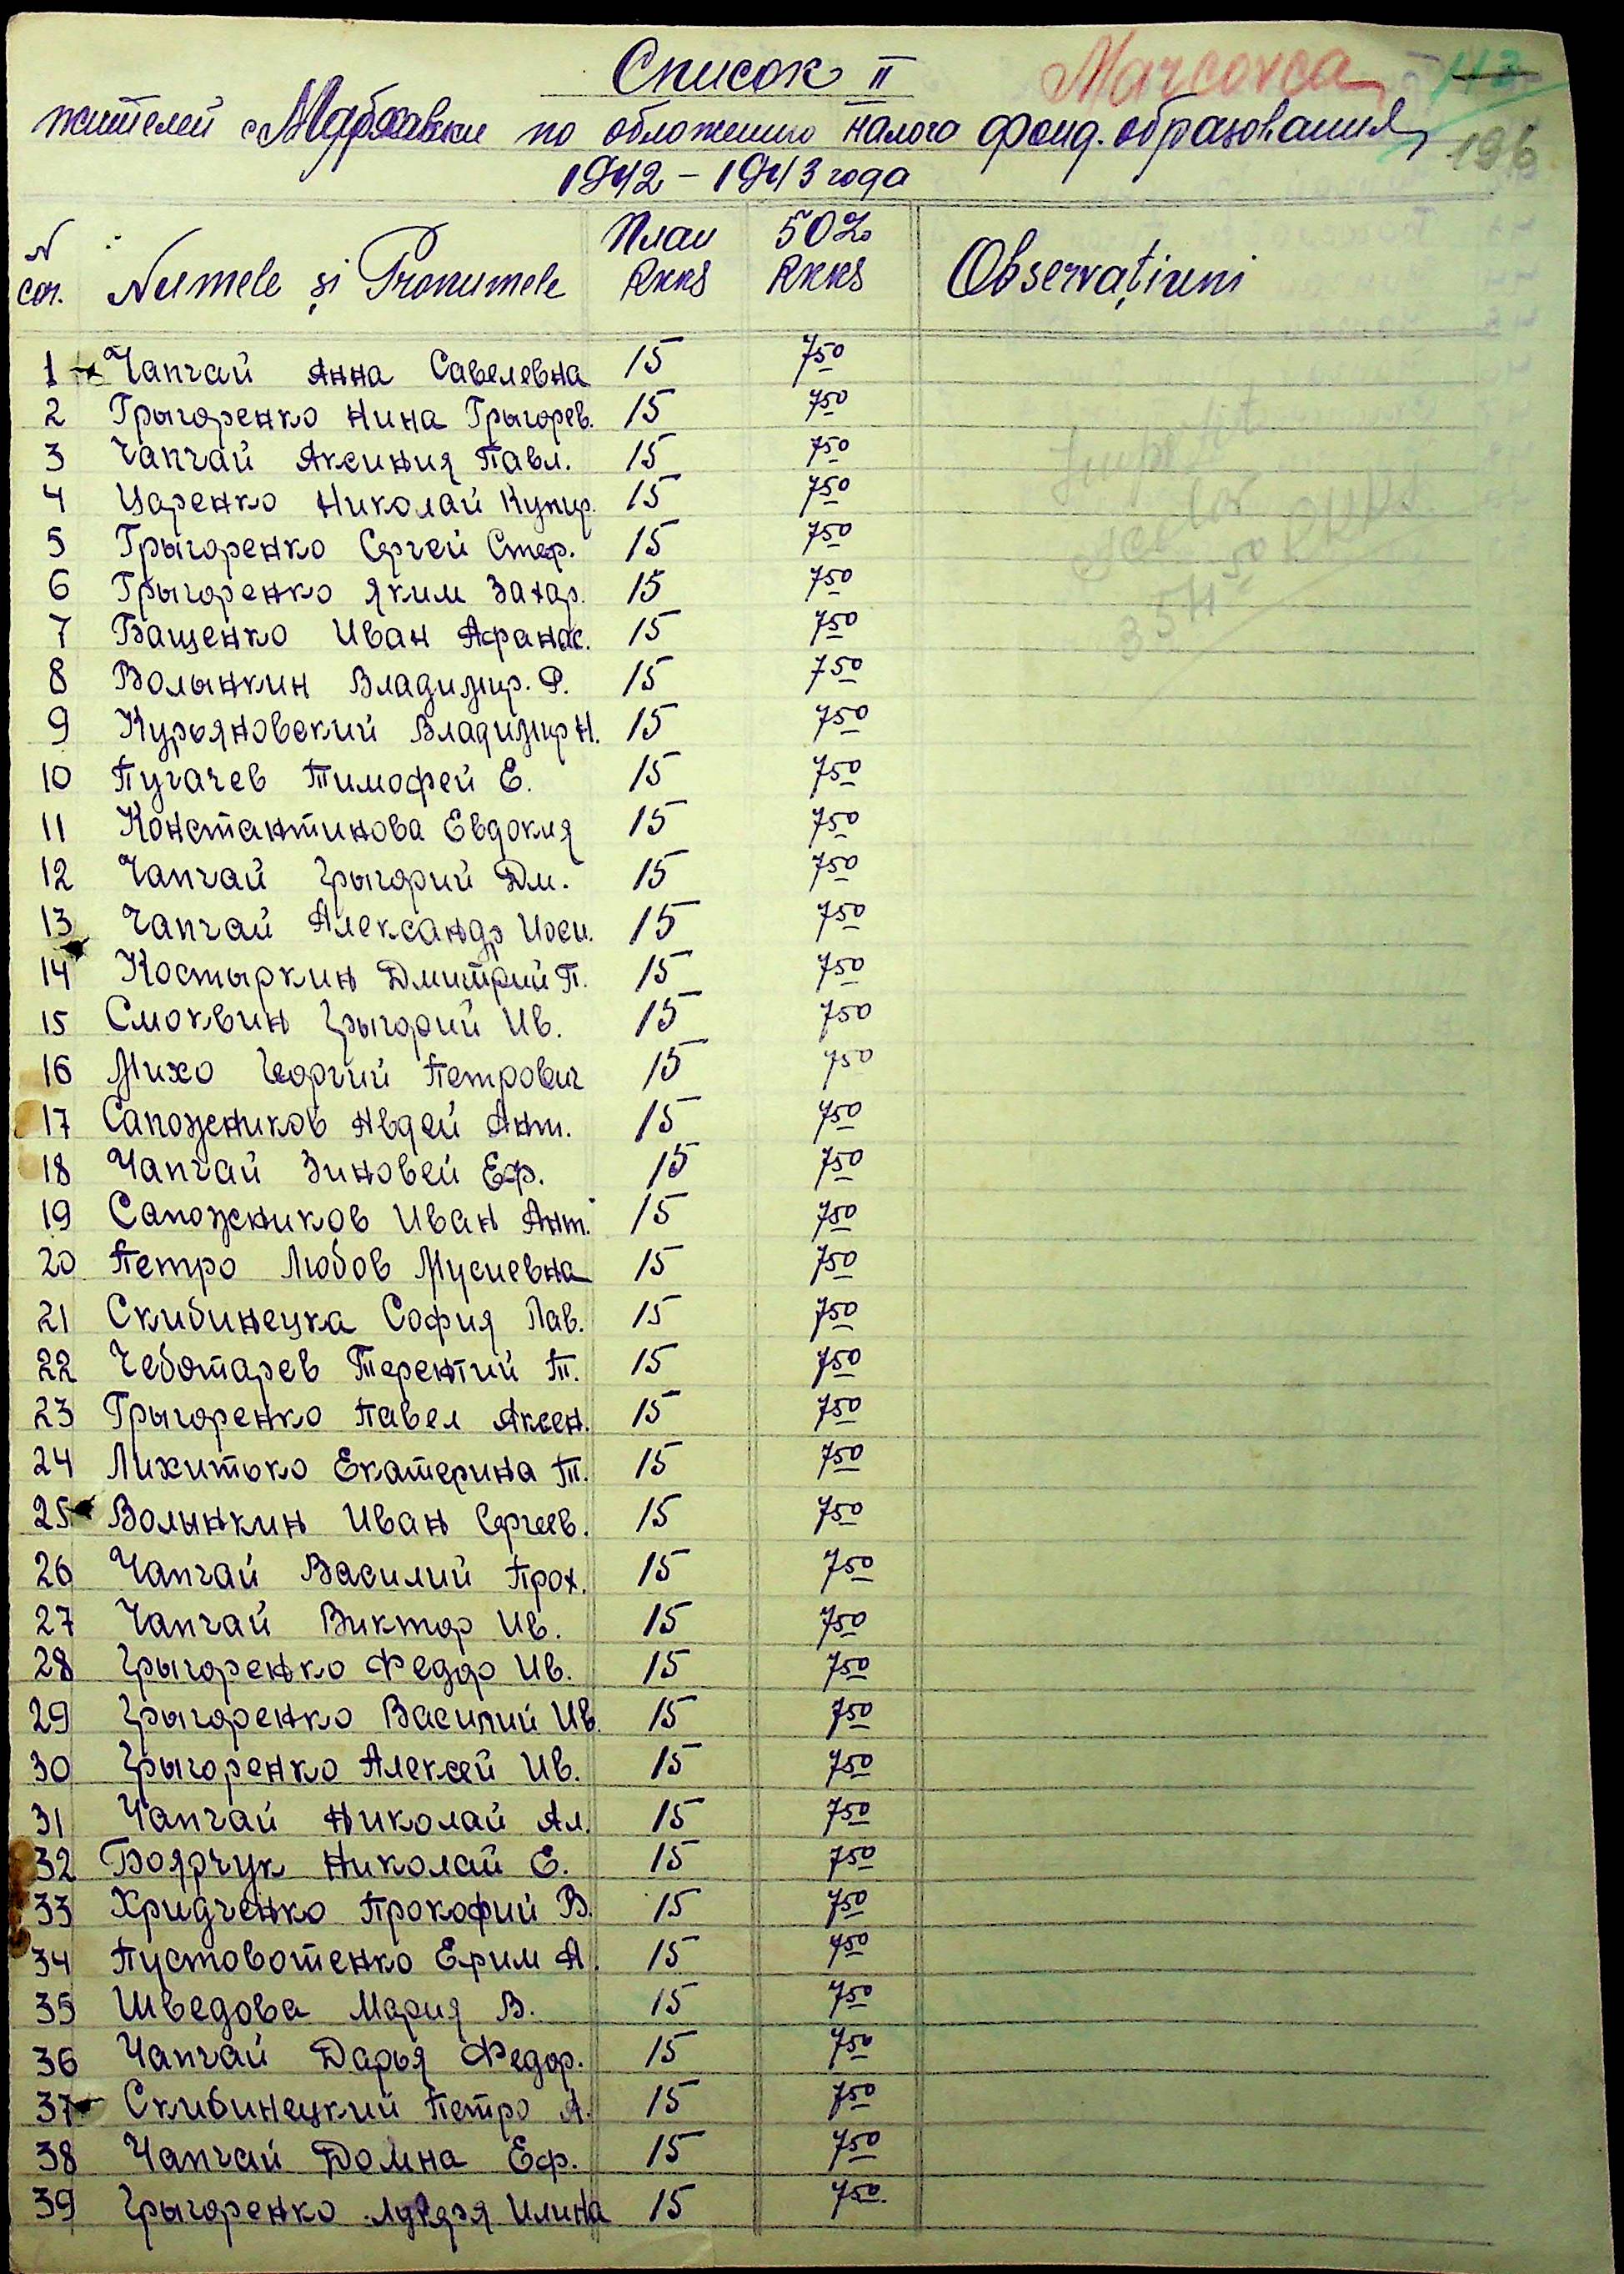 Список II
Marcovca
112
196
жителей с. Марковки по обложению налога фонд. образования
1942 – 1943 года
N cor. Numele și Pronumele План RKKS 50% RKKS Observațiuni
1 Чапгай Анна Савелевна 15 7 50
2 Грыгоренко Нина Грыгорев. 15 7 50
3 Чапгай Аксиния Павл. 15 7 50
4 Царенко Николай Купир. 15 7 50
5 Грыгоренко Сергей Стеф. 15 7 50
6 Грыгоренко Яким Захар. 15 7 50
7 Бащенко Иван Афанас. 15 7 50
8 Волынкин Владимир. Ф. 15 7 50
9 Курьяновский Владимир Н. 15 7 50
10 Пугачев Тимофей Е. 15 7 50
11 Константинова Евдокия 15 7 50
12 Чапгай Грыгорий Дм. 15 7 50
13 Чапгай Александр Иоси. 15 7 50
14 Костыркин Дмитрий П. 15 7 50
15 Смоквин Грыгорий Ив. 15 7 50
16 Михо Георгий Петрович 15 7 50
17 Сапожеников Авдей Ант. 15 7 50
18 Чапгай Зиновей Еф. 15 7 50
19 Сапожеников Иван Ант. 15 7 50
20 Петро Любов Мусиевна 15 7 50
21 Скибинецка София Пав. 15 7 50
22 Чеботарев Терентий Т. 15 7 50
23 Грыгоренко Павел Аксен. 15 7 50
24 Лихитько Екатерина Т. 15 7 50
25 Волынкин Иван Сергеев. 15 7 50
26 Чапгай Василий Прох. 15 7 50
27 Чапгай Виктор Ив. 15 7 50
28 Грыгоренко Федор Ив. 15 7 50
29 Грыгоренко Василий Ив. 15 7 50
30 Грыгоренко Алексей Ив. 15 7 50
31 Чапгай Николай Ал. 15 7 50
32 Боярчук Николай Е. 15 7 50
33 Хридченко Прокофий В. 15 7 50
34 Пустовотенко Ефим А. 15 7 50
35 Шведова Мария В. 15 7 50
36 Чапгай Дарья Федор. 15 7 50
37 Скибинецкий Петро А. 15 7 50
38 Чапгай Домна Еф. 15 7 50
39 Грыгоренко Лукеря Илина 15 7 50.